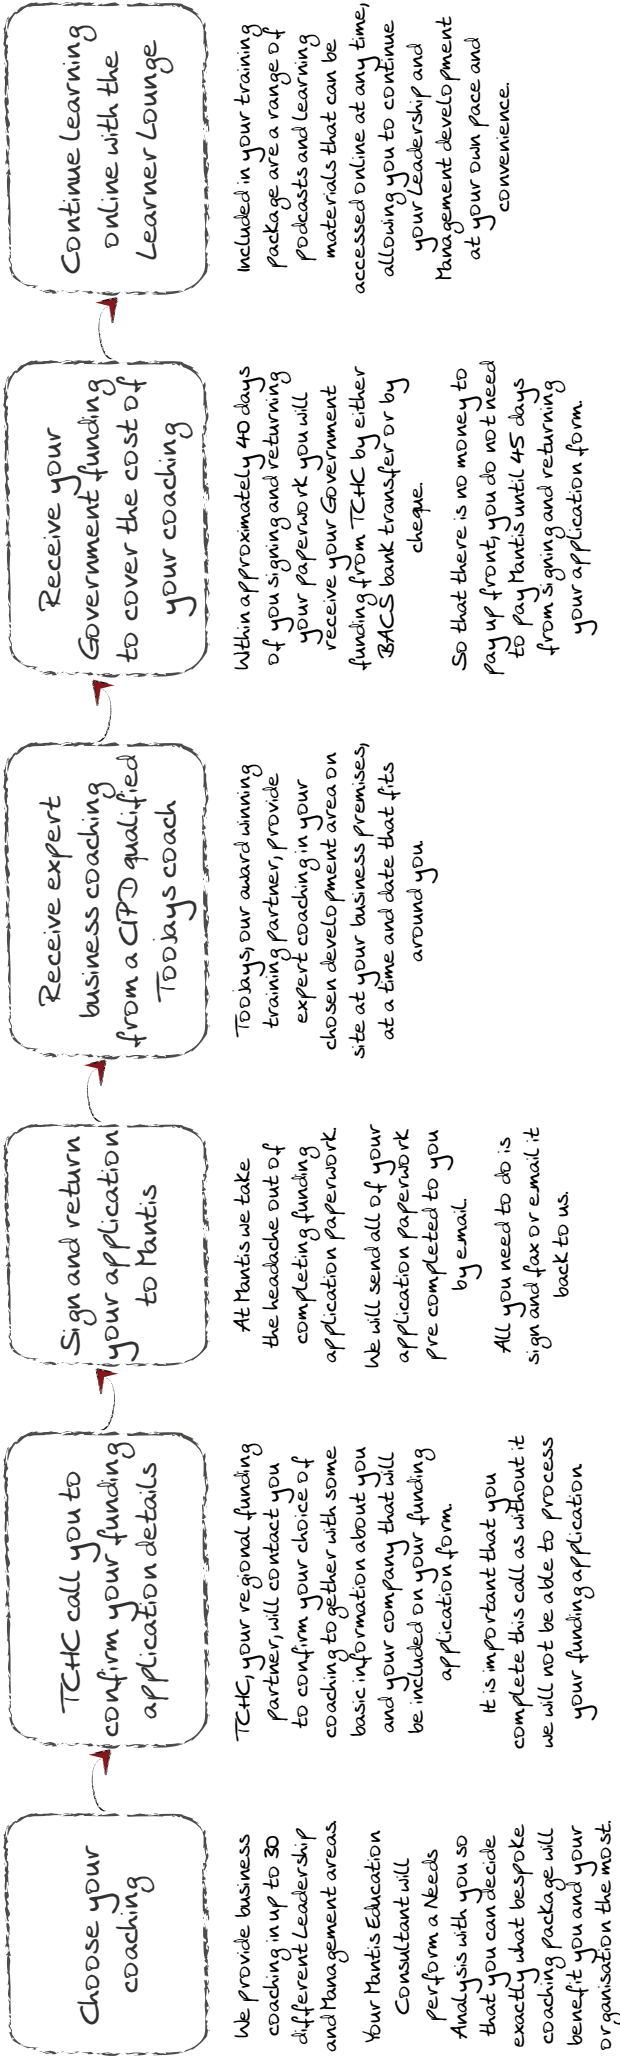 Choose your
coaching
We provide business
coaching in up to 30
different Leadership
and Management areas
Your Mantis Education
Consultant will
perform a Needs
Analysis with you so
that you can decide
exactly what bespoke
coaching package will
benefit you and your
organisation the most.
TCHC call you to
confirm your funding
application details
TCHC, your regional funding
partner, will contact you
to confirm your choice of
coaching together with some
basic information about you
and your company that will
be included on your funding
application form.
It is important that you
complete this call as without it
we will not be able to process
your funding application
Sign and return
your application
to Mantis
At Mantis we take
the headache out of
completing funding
application paperwork.
We will send all of your
application paperwork
pre completed to you
by email.
All you need to do is
sign and fax or email it
back to us.
Receive expert
business coaching
from a CIPD qualified
Toojays coach
Toojays, our award winning
training partner, provide
expert coaching in your
chosen development area on
site at your business premises,
at a time and date that fits
around you.
Receive your
Government funding
to cover the cost of
your coaching
Within approximately 40 days
of you signing and returning
your paperwork you will
receive your Government
funding from TCHC by either
BACS bank transfer or by
cheque.
So that there is no money to
pay up front, you do not need
to pay Mantis until 45 days
from signing and returning
your application form.
Continue learning
online with the
Learner Lounge
Included in your training
package are a range of
podcasts and learning
materials that can be
accessed online at any time,
allowing you to continue
your Leadership and
Management development
at your own pace and
convenience.